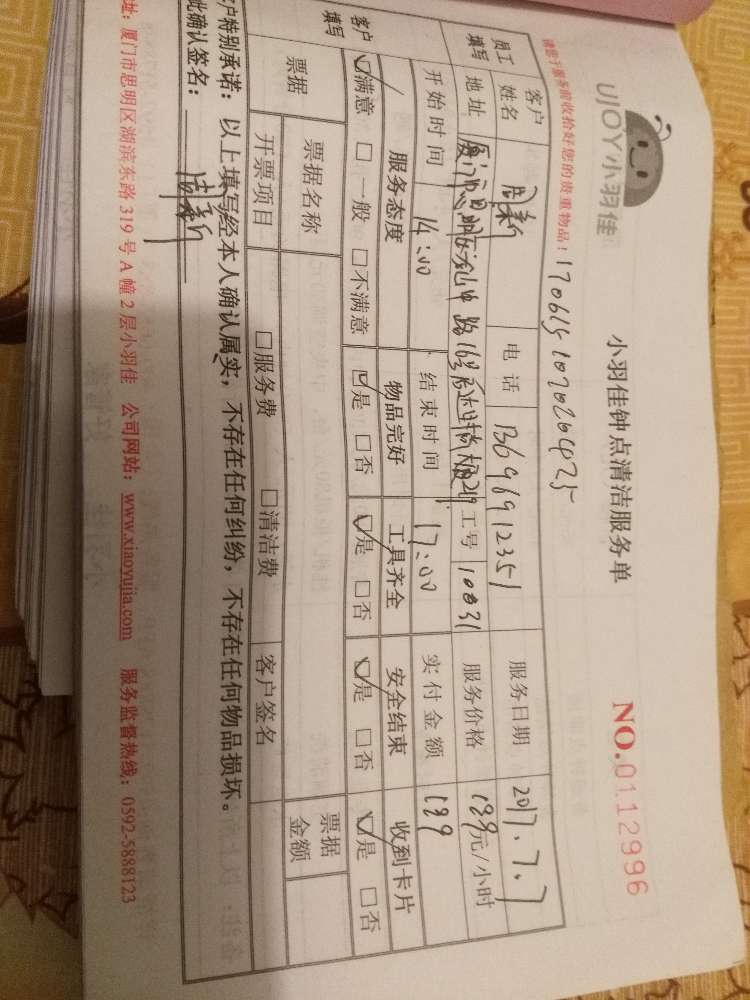 UJOY小羽佳
小羽佳钟点清洁服务单
NO.0112996
请您于服务前收拾好您的贵重物品！
1706151070260425
员工填写
客户姓名
电话 13696912351
服务日期 2017.7.7
地址 厦门市思明区 路16号
工号 10031
服务价格 189元/小时
开始时间 14:00
结束时间 17:00
实付金额 189
客户填写
服务态度 物品完好 工具齐全 安全结束 收到卡片
☑满意 □一般 □不满意 ☑是 □否 ☑是 □否 ☑是 □否 ☑是 □否
票据
票据名称
票据金额
开票项目 □服务费 □清洁费 客户签名
客户特别承诺：以上填写经本人确认属实，不存在任何纠纷，不存在任何物品损坏。
此确认签名：
址：厦门市思明区湖滨东路319号A幢2层小羽佳 公司网站：www.xiaoyujia.com 服务监督热线：0592-5888123